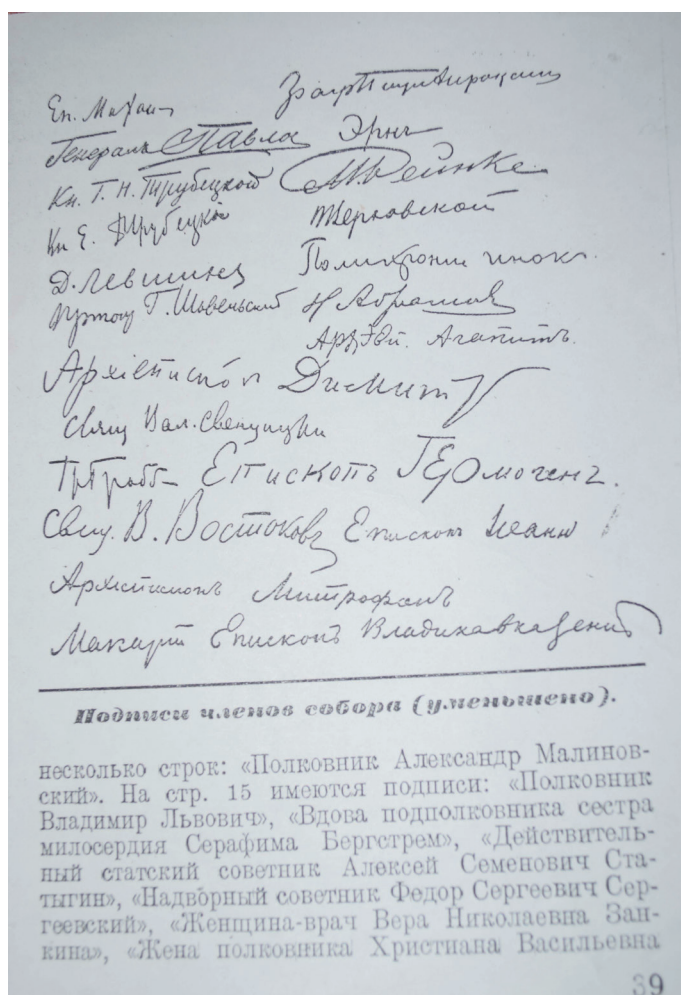 Еп. Михаил
Генералъ Павла Эрнъ
Кн. Г. Н. Трубецкой М. Рейнке
Кн Е. Трубецкой Жерновской
Д. Левшинъ Поликроний инокъ
Г. Шавельский Н Абрамов
Агапитъ.
Архіепископ Димитр
свящ Вал. Свенцицки
Гр Граббе Епископъ Гермогенъ.
Свящ. В. Востоковъ Епископъ Иоанн
Архіепископъ Митрофанъ
Макарій Епископъ Владикавказскій
Подписи членов собора (уменьшено).
несколько строк: «Полковник Александр Малинов-
ский». На стр. 15 имеются подписи: «Полковник
Владимир Львович», «Вдова подполковника сестра
милосердия Серафима Бергстрем», «Действитель-
ный статский советник Алексей Семенович Ста-
тыгин», «Надворный советник Федор Сергеевич Сер-
геевский», «Женщина-врач Вера Николаевна Зан-
кина», «Жена полковника Христиана Васильевна
39